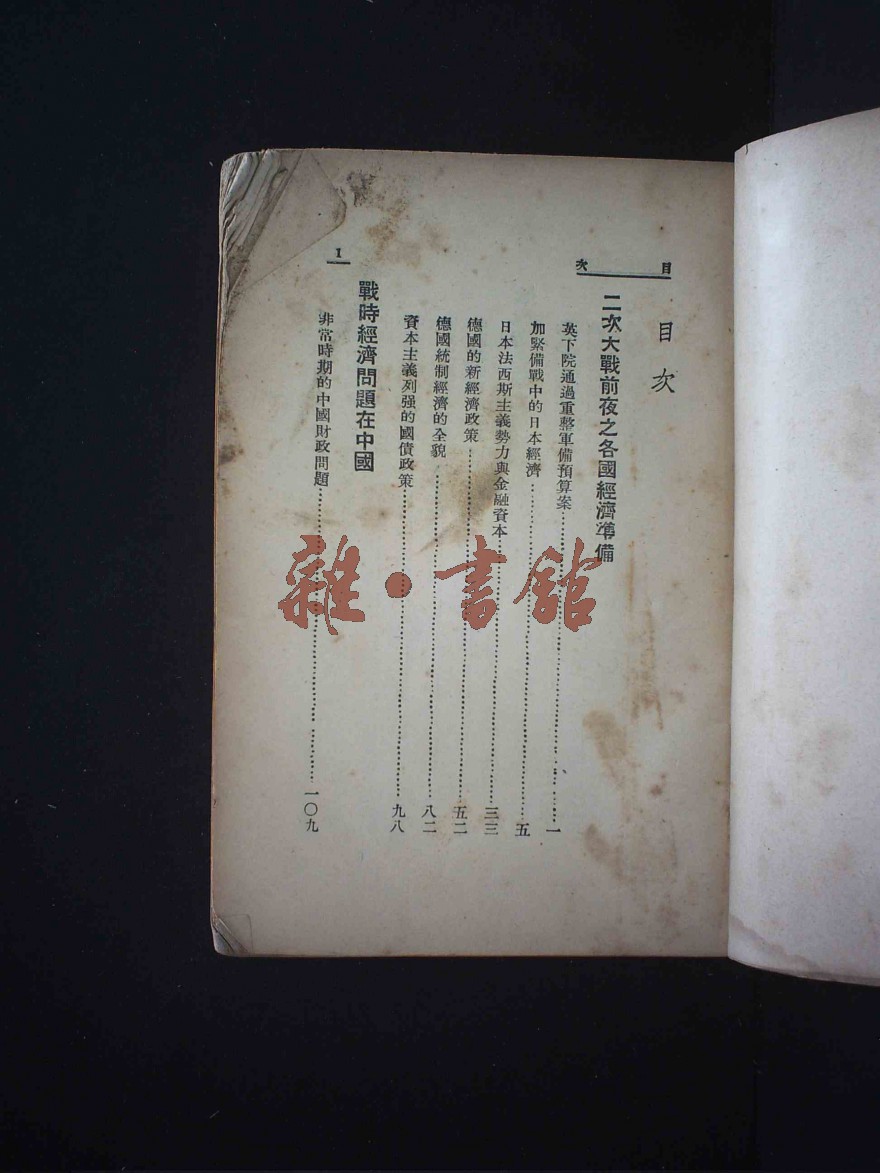 目次
目次
二次大戰前夜之各國經濟準備
英下院通過重整軍備預算案……一
加緊備戰中的日本經濟……五
日本法西斯主義勢力與金融資本……三三
德國的新經濟政策……五二
德國統制經濟的全貌……八二
資本主義列强的國債政策……九八
戰時經濟問題在中國
非常時期的中國財政問題……一〇九
1
雜·書館